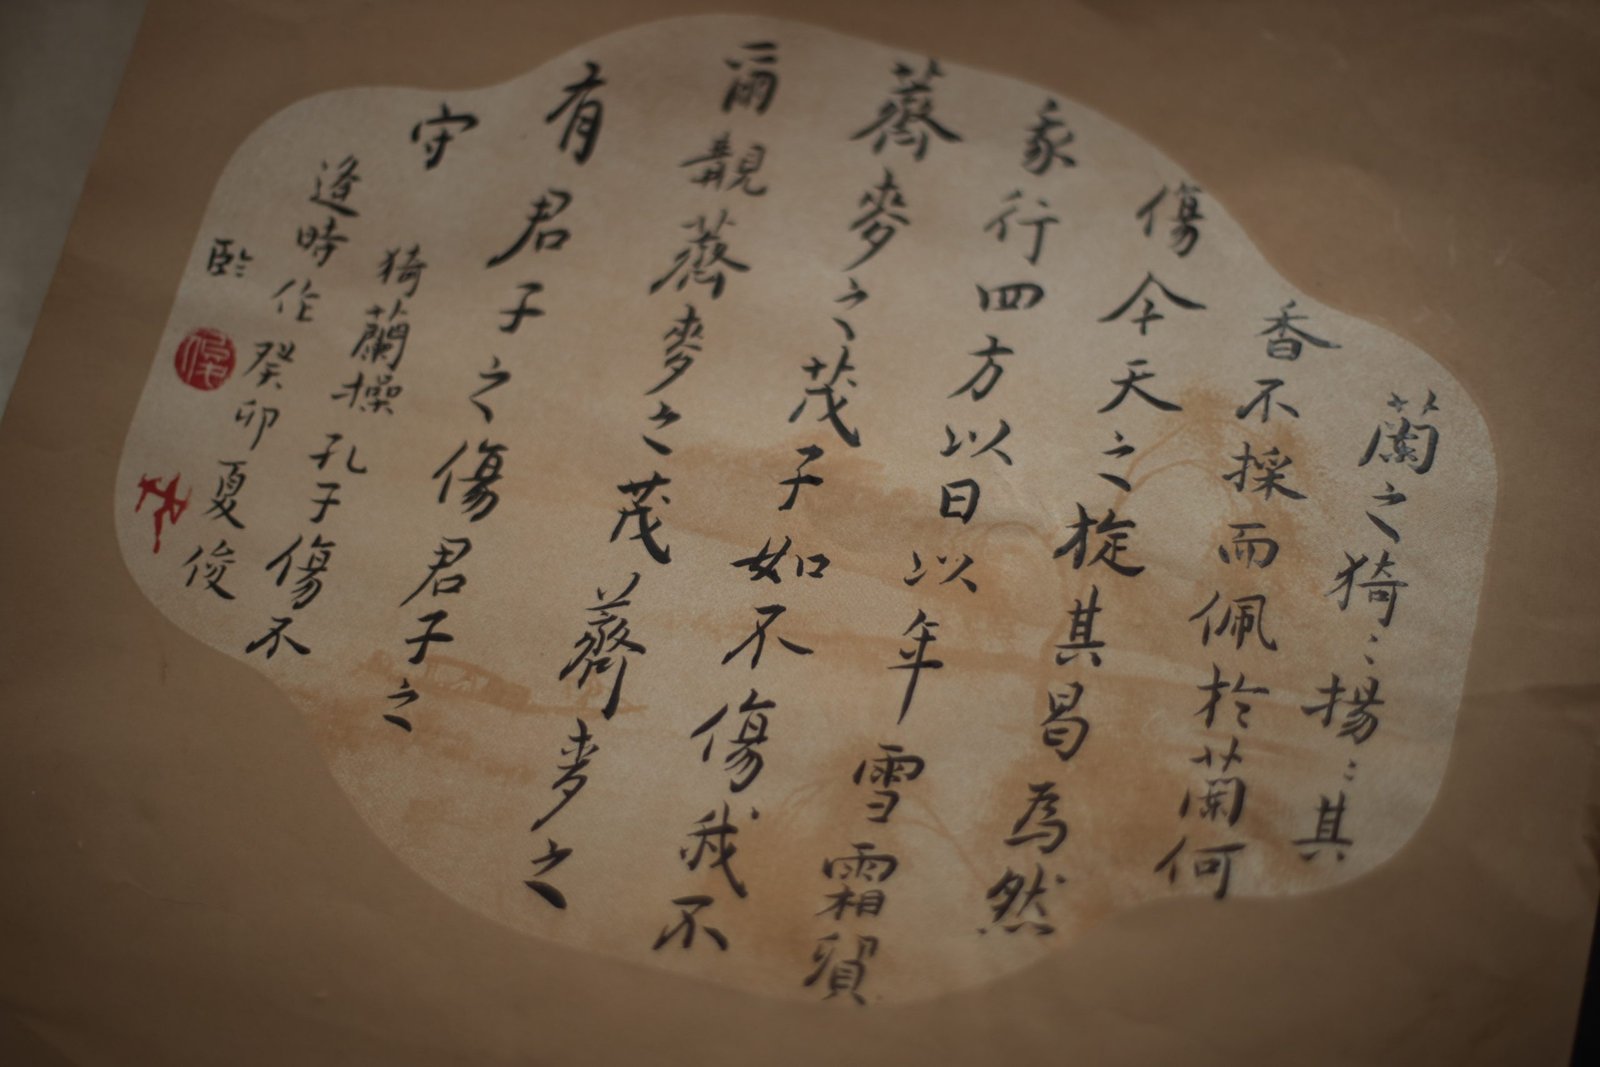 蘭之猗：揚：其
香不採而佩於蘭何
傷今天之旋其曷為然
家行四方以日以年雪霜貿
薺麥之茂子如不傷我不
爾覯薺麥之茂薺麥之
有君子之傷君子之
守
猗蘭操孔子傷不
逢時作癸卯夏俊
臥